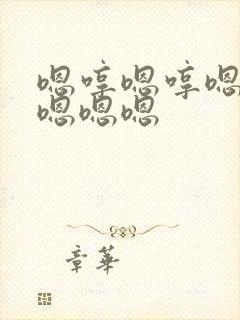 嗯啍嗯啍嗯
嗯嗯嗯
章華